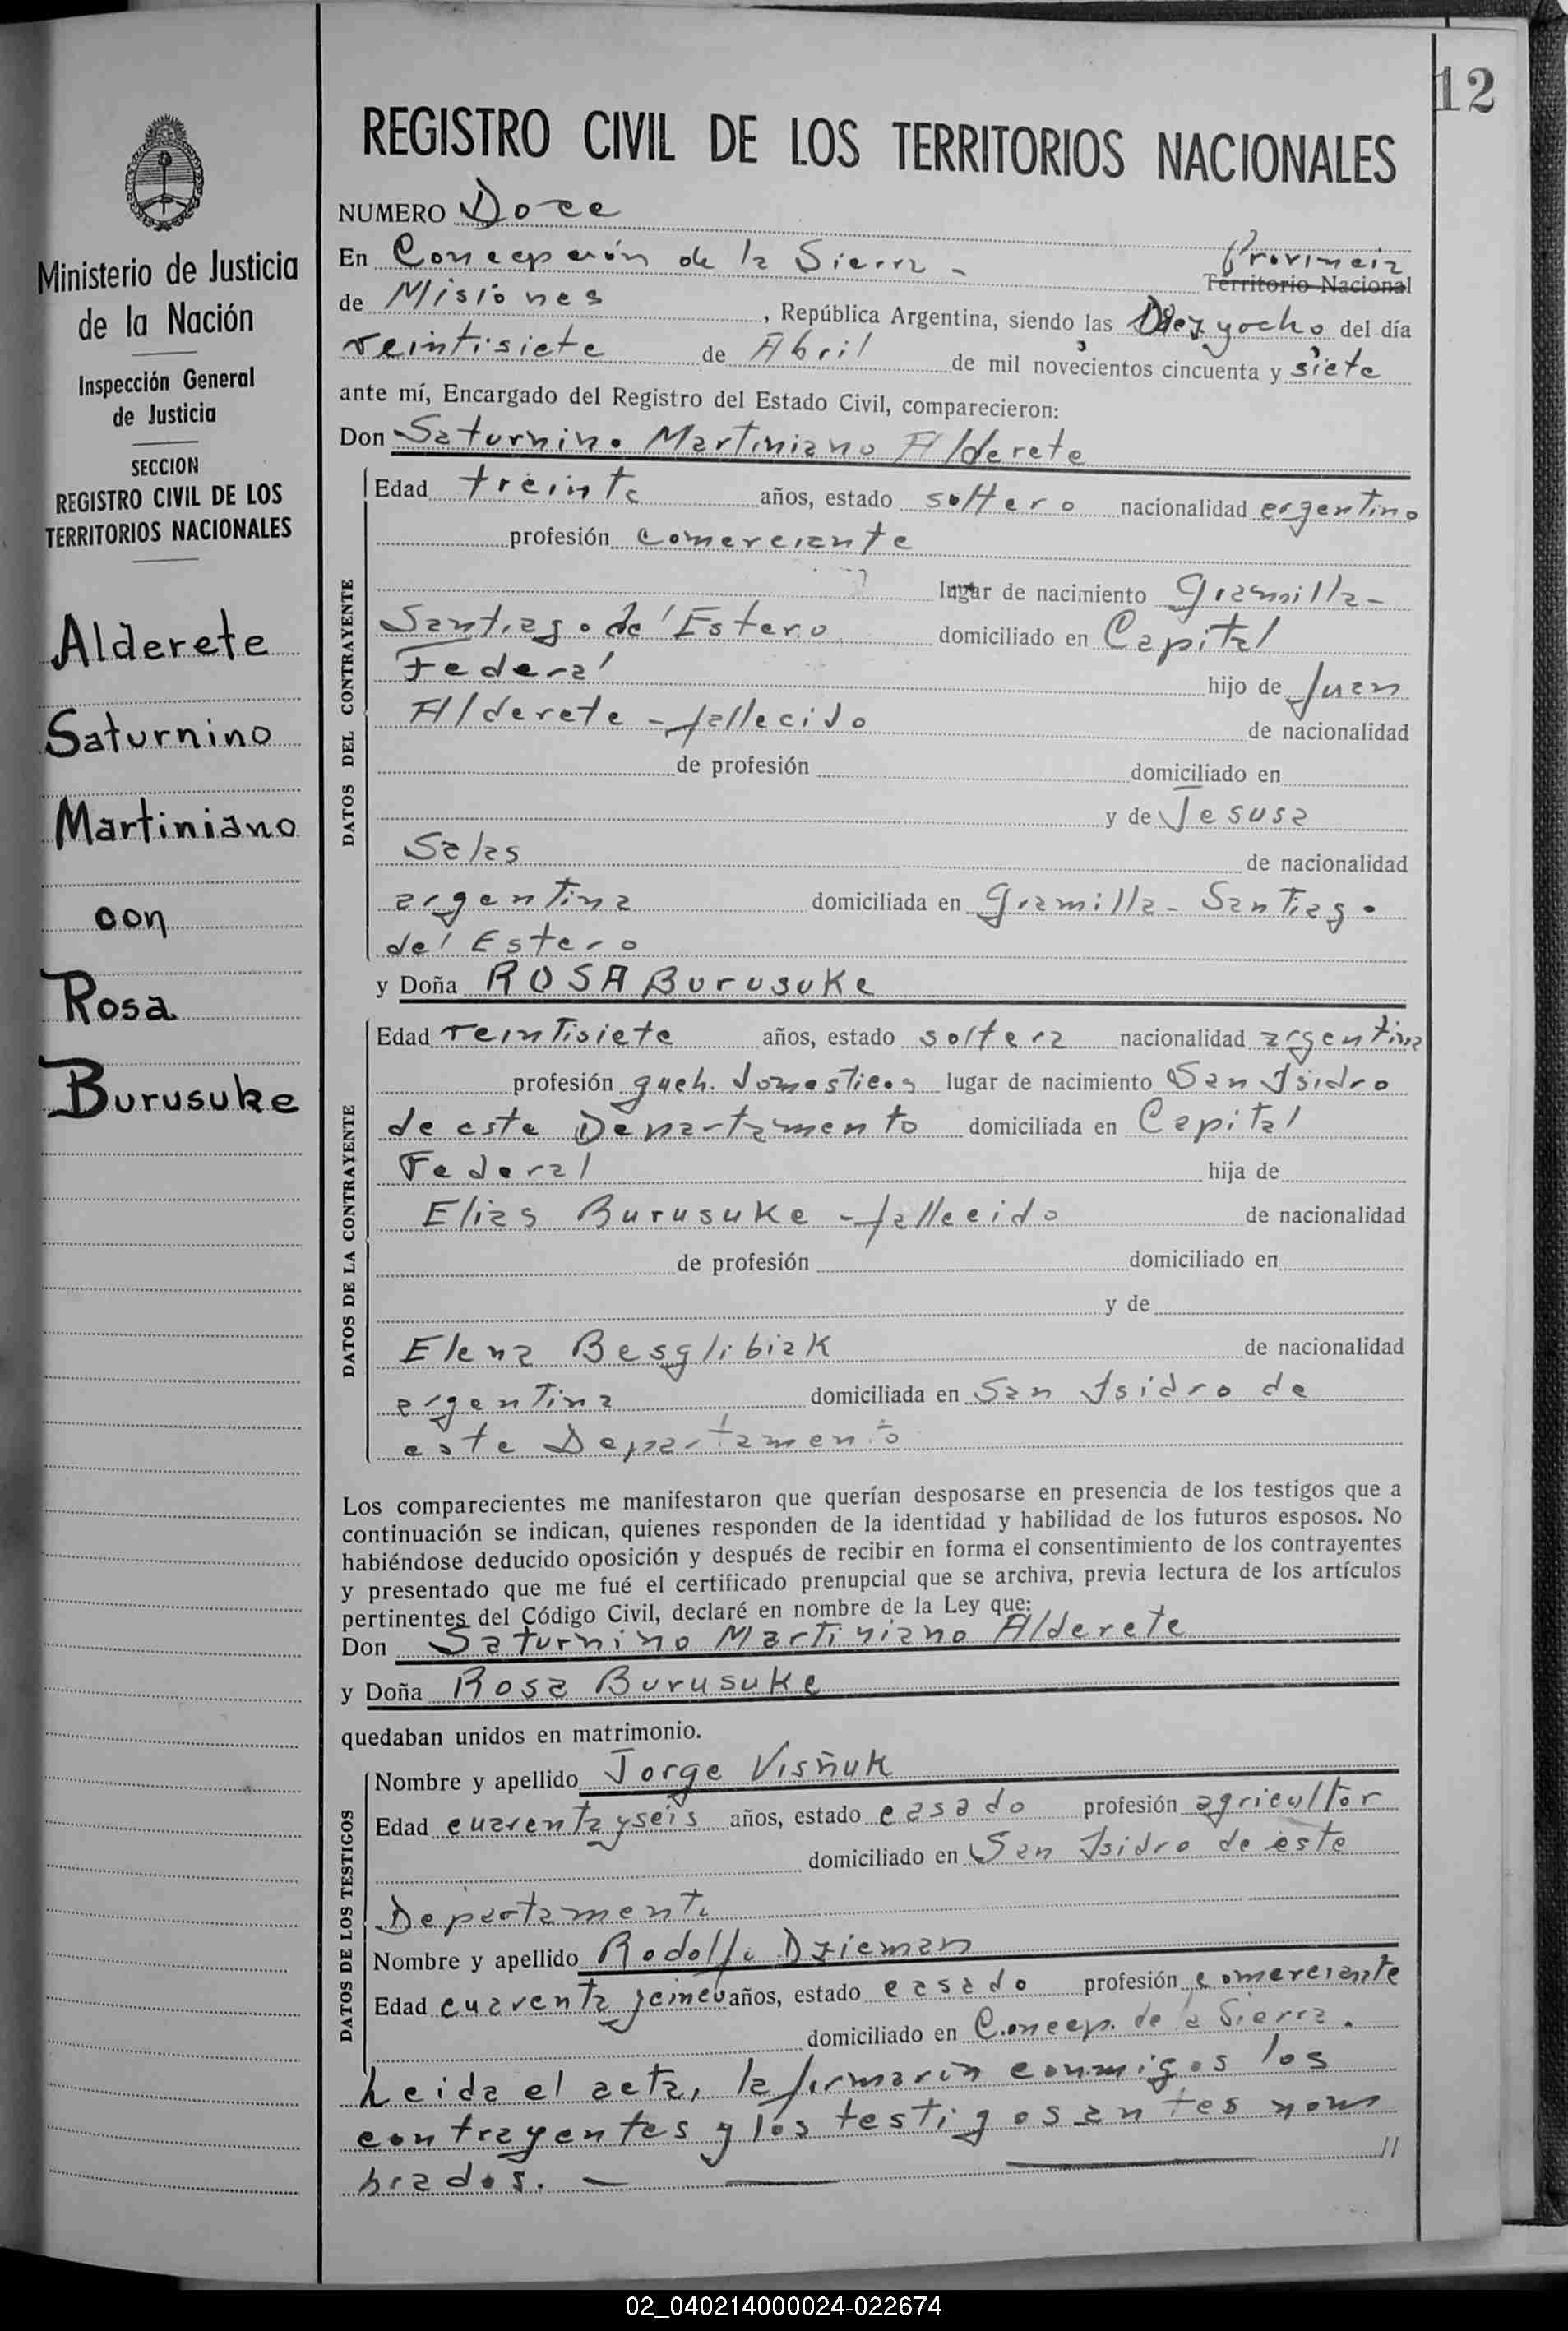 12
REGISTRO CIVIL DE LOS TERRITORIOS NACIONALES
Ministerio de Justicia
de la Nación
Inspección General
de Justicia
SECCION
REGISTRO CIVIL DE LOS
TERRITORIOS NACIONALES
Alderete
Saturnino
Martiniano
con
Rosa
Burusuke
NUMERO Doce
En Concepción de la Sierra - Provincia
Territorio Nacional
de Misiones, República Argentina, siendo las Diez y ocho del día
veintisiete de Abril de mil novecientos cincuenta y siete
ante mí, Encargado del Registro del Estado Civil, comparecieron:
Don Saturnino Martiniano Alderete
DATOS DEL CONTRAYENTE
Edad treinta años, estado soltero nacionalidad argentino
profesión comerciante
lugar de nacimiento Gramilla-
Santiago del Estero domiciliado en Capital
Federal hijo de Juan
Alderete - fallecido de nacionalidad
de profesión domiciliado en
y de Jesusa
Salas de nacionalidad
argentina domiciliada en Gramilla - Santiago
del Estero
y Doña ROSA Burusuke
DATOS DE LA CONTRAYENTE
Edad veintisiete años, estado soltera nacionalidad argentina
profesión queh. domesticos lugar de nacimiento San Isidro
de este Departamento domiciliada en Capital
Federal hija de
Elias Burusuke - fallecido de nacionalidad
de profesión domiciliado en
y de
Elena Besglibiak de nacionalidad
argentina domiciliada en San Isidro de
este Departamento
Los comparecientes me manifestaron que querían desposarse en presencia de los testigos que a
continuación se indican, quienes responden de la identidad y habilidad de los futuros esposos. No
habiéndose deducido oposición y después de recibir en forma el consentimiento de los contrayentes
y presentado que me fué el certificado prenupcial que se archiva, previa lectura de los artículos
pertinentes del Código Civil, declaré en nombre de la Ley que:
Don Saturnino Martiniano Alderete
y Doña Rosa Burusuke
quedaban unidos en matrimonio.
DATOS DE LOS TESTIGOS
Nombre y apellido Jorge Visñuk
Edad cuarenta y seis años, estado casado profesión agricultor
domiciliado en San Isidro de este
Departamento
Nombre y apellido Rodolfo Dzieman
Edad cuarenta y cinco años, estado casado profesión comerciante
domiciliado en Concep. de la Sierra.
Leida el acta, la firmarón conmigos los
contrayentes y los testigos antes nom
brados. — //
02_040214000024-022674